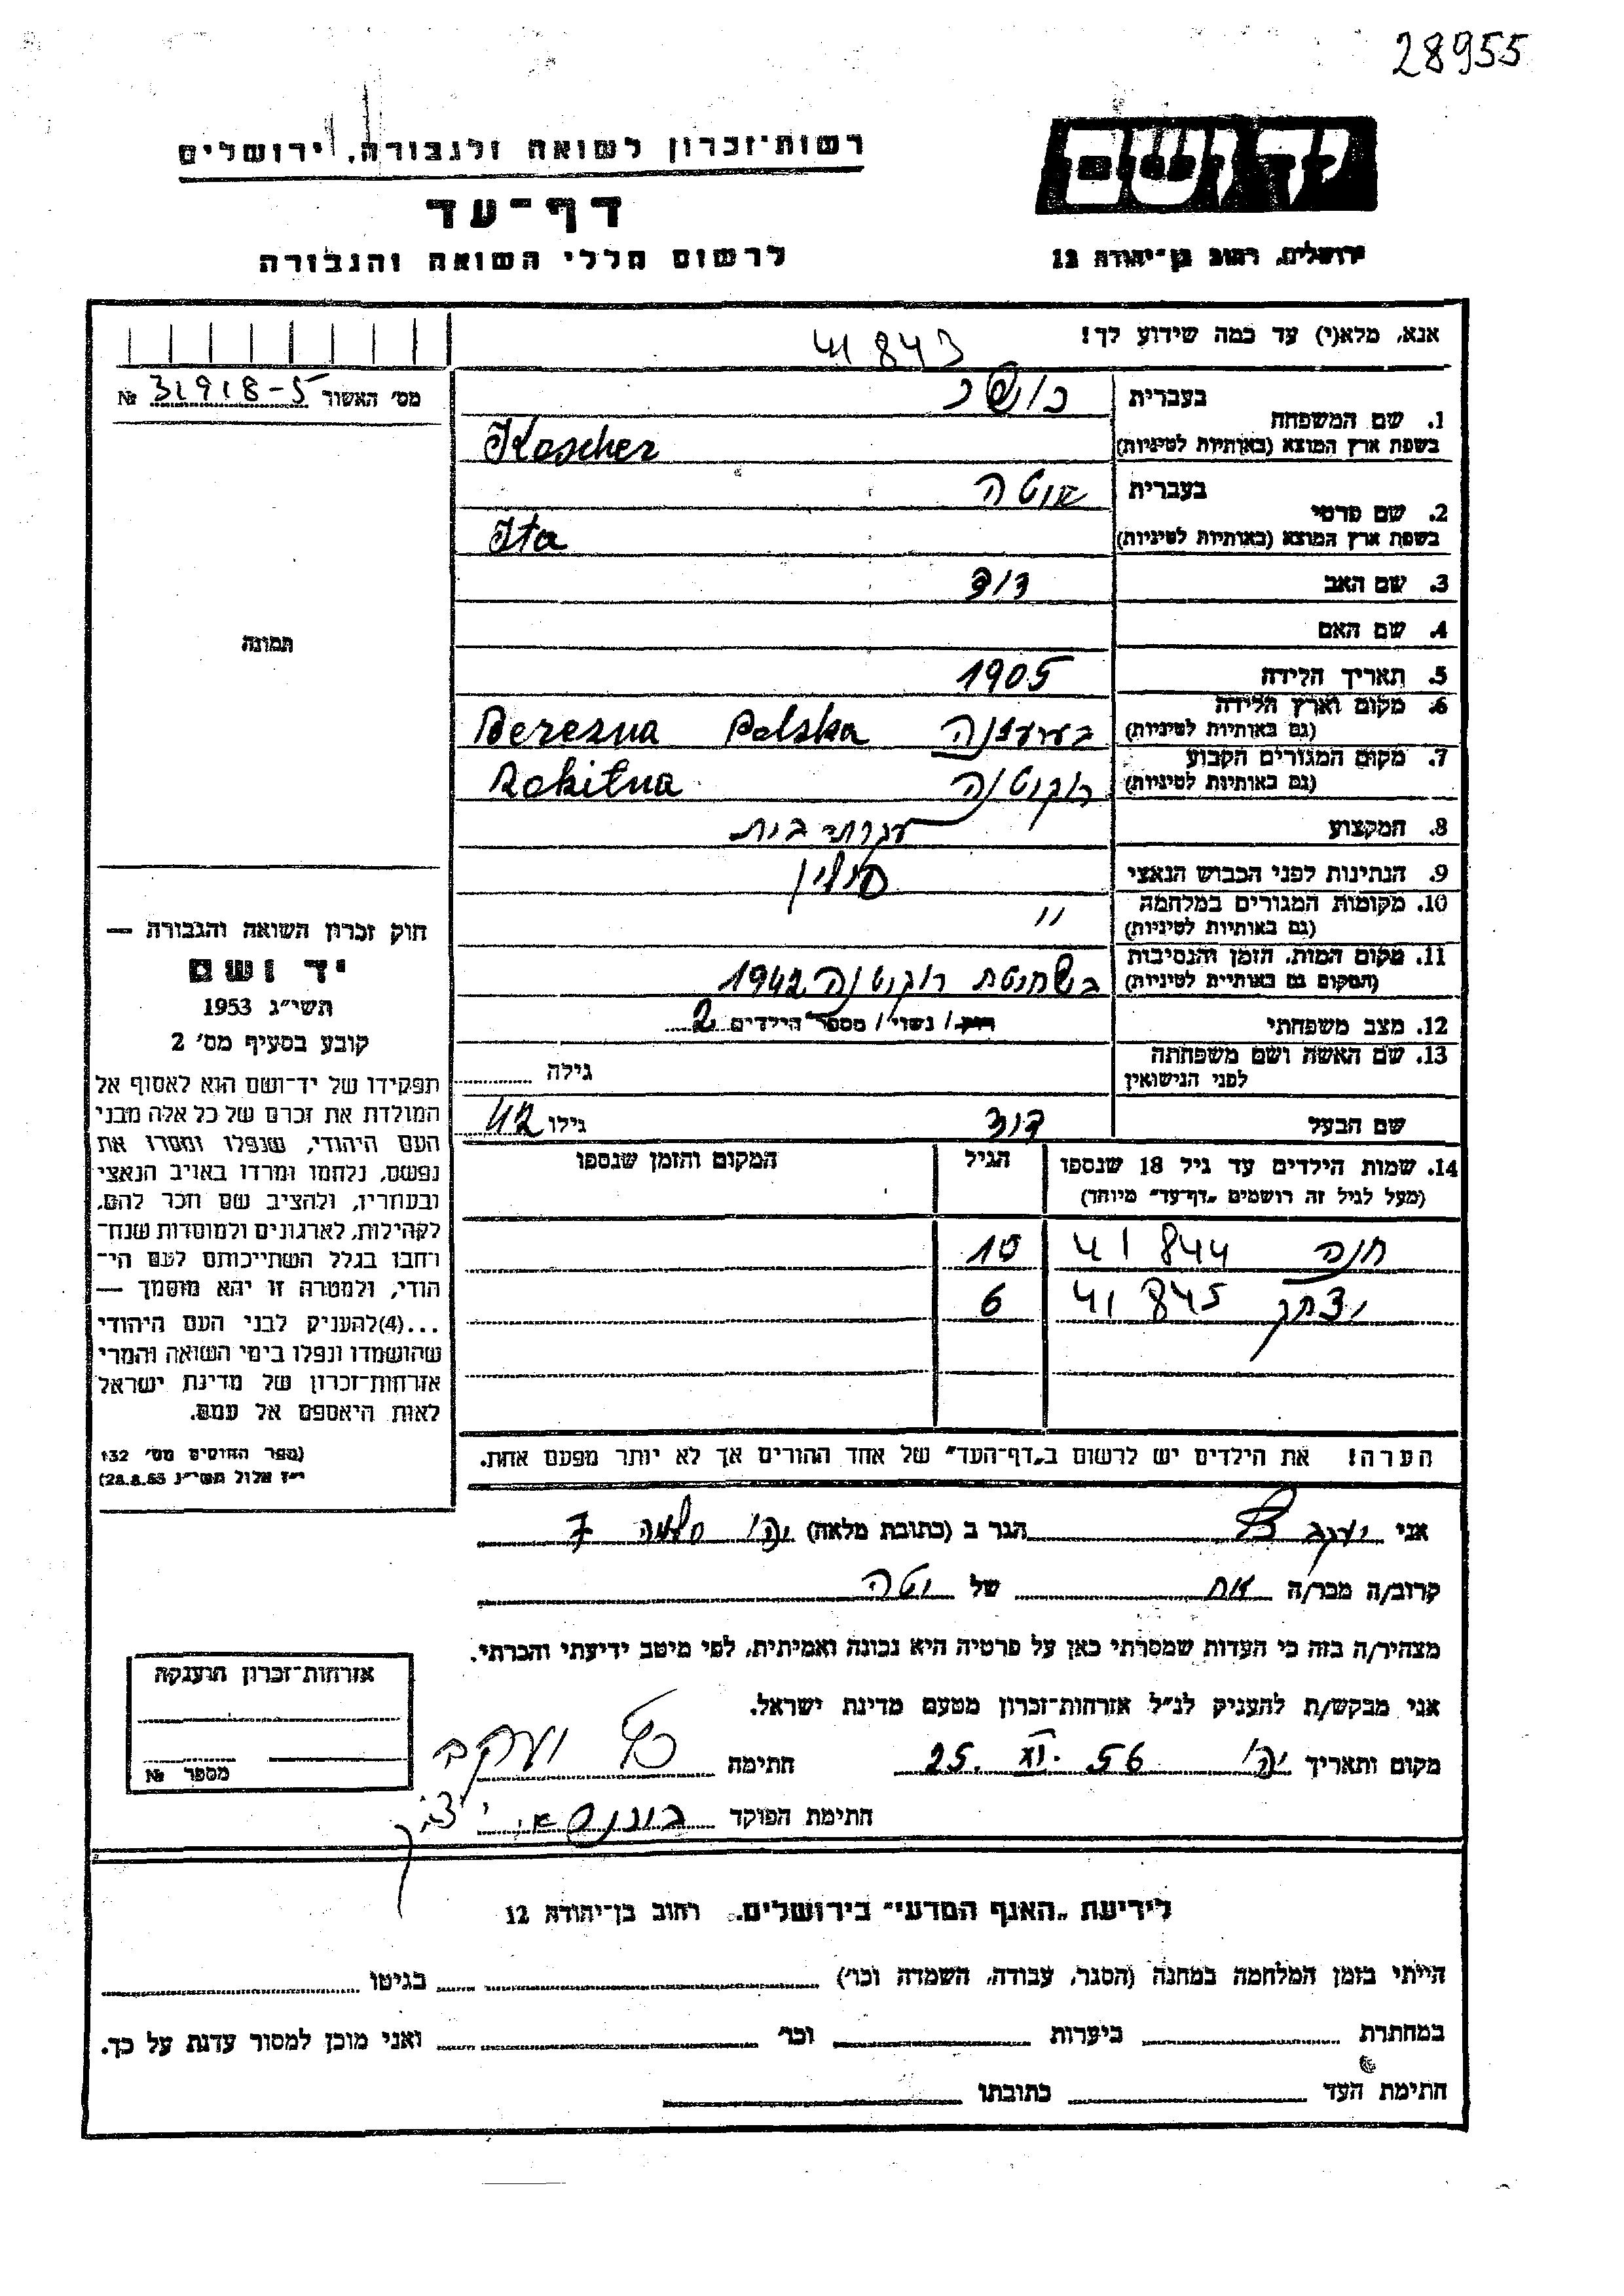 28955
יד ושם
ירושלים, רחוב בן־יהודה 12
רשות־זכרון לשואה ולגבורה, ירושלים
דף־עד
לרשום חללי השואה והגבורה
אנא, מלא(י) עד כמה שידוע לך!
41843
מס׳ האשור № 31918-5
תמונה
1. שם המשפחה
בעברית
כושר
בשפת ארץ המוצא (באותיות לטיניות)
Koscher
2. שם פרטי
בעברית
איטה
בשפת ארץ המוצא (באותיות לטיניות)
Ita
3. שם האב דוד
4. שם האם
5. תאריך הלידה 1905
6. מקום וארץ הלידה
(גם באותיות לטיניות)
Berezna Polska
7. מקום המגורים הקבוע
(גם באותיות לטיניות)
רוקיטנה Rokitna
8. המקצוע עקרת בית
9. הנתינות לפני הכבוש הנאצי פולין
10. מקומות המגורים במלחמה
(גם באותיות לטיניות)
״
11. מקום המות, הזמן והנסיבות
(המקום גם באותיות לטיניות)
בשחיטת רוקיטנה 1942
12. מצב משפחתי רוק / נשוי / מספר הילדים 2
13. שם האשה ושם משפחתה
לפני הנישואין
גילה
שם הבעל דוד גילו 42
14. שמות הילדים עד גיל 18 שנספו
(מעל לגיל זה רושמים „דף־עד״ מיוחד)
הגיל
המקום והזמן שנספו
חנה 41844 10
יצחק 41845 6
הערה! את הילדים יש לרשום ב„דף־העד״ של אחד ההורים אך לא יותר מפעם אחת.
חוק זכרון השואה והגבורה —
יד ושם
תשי״ג 1953
קובע בסעיף מס׳ 2
תפקידו של יד־ושם הוא לאסוף אל
המולדת את זכרם של כל אלה מבני
העם היהודי, שנפלו ומסרו את
נפשם, נלחמו ומרדו באויב הנאצי
ובעוזריו, ולהציב שם וזכר להם,
לקהילות, לארגונים ולמוסדות שנח־
רבו בגלל השתייכותם לעם הי־
הודי, ולמטרה זו יהא מוסמך —
...(4) להעניק לבני העם היהודי
שהושמדו ונפלו בימי השואה והמרי
אזרחות־זכרון של מדינת ישראל
לאות היאספם אל עמם.
(ספר החוקים מס׳ 132
י״ז אלול תשי״ג 28.8.53)
אני יעקב הגר ב (כתובת מלאה) 7
קרוב/ה מכר/ה אח של יטה
מצהיר/ה בזה כי העדות שמסרתי כאן על פרטיה היא נכונה ואמיתית, לפי מיטב ידיעתי והכרתי.
אני מבקש/ת להעניק לנ״ל אזרחות־זכרון מטעם מדינת ישראל.
מקום ותאריך 25. XI. 56 חתימה יעקב
חתימת הפוקד
אזרחות־זכרון הוענקה
מספר №
לידיעת „האגף המדעי״ בירושלים, רחוב בן־יהודה 12
הייתי בזמן המלחמה במחנה (הסגר, עבודה, השמדה וכו׳) בגיטו
במחתרת ביערות וכו׳ ואני מוכן למסור עדות על כך.
חתימת העד כתובתו